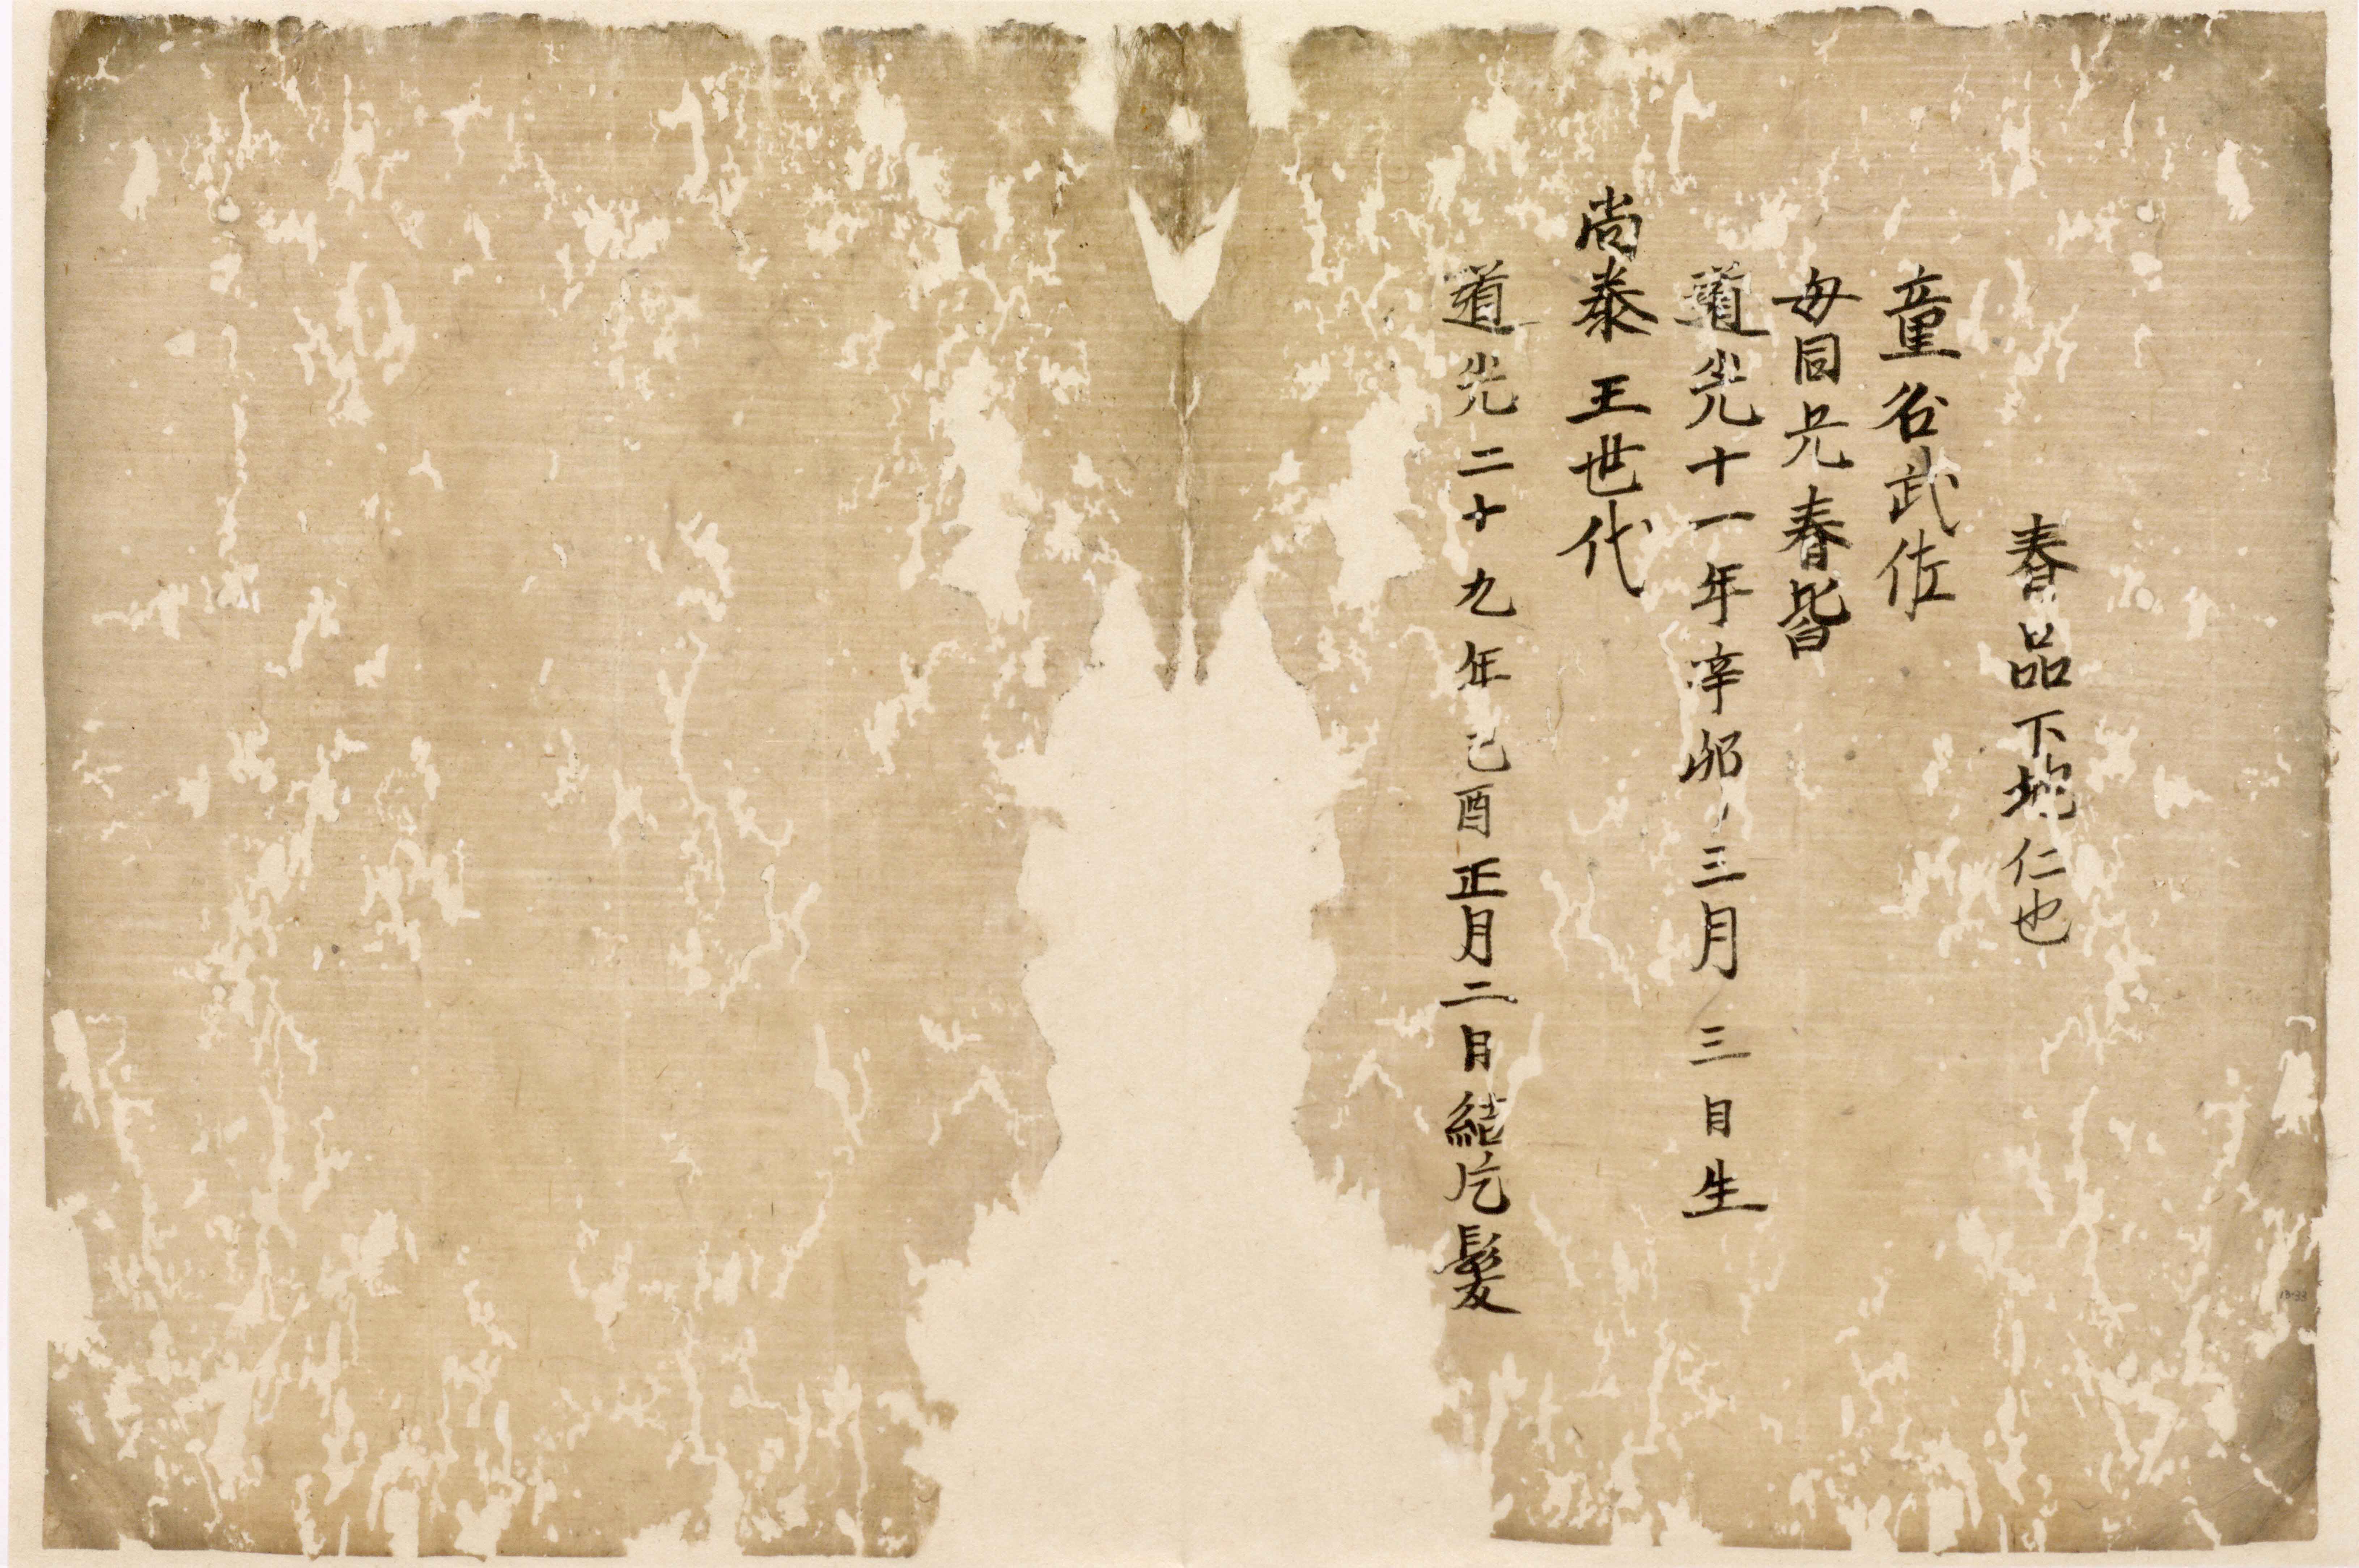 春品下地仁也
童名武佐
母同兄春皆
道光十一年辛卯三月三日生
尚泰王世代
道光二十九年己酉正月二日結片髪